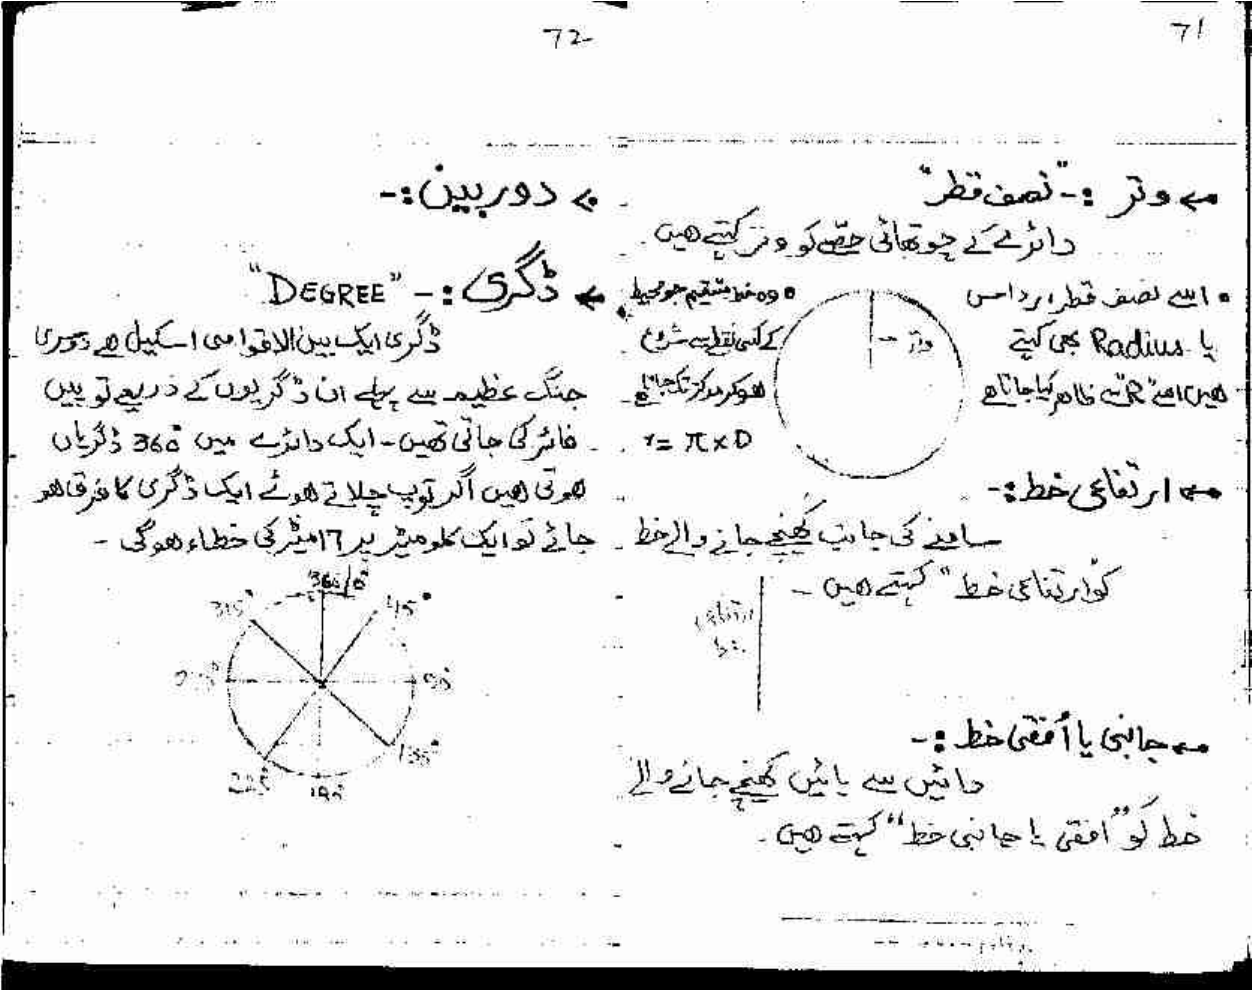 71
وتر :- "نصف قطر"
دائرے کے چوتھائی حصّے کو وتر کہتے ھیں.
• اسے نصف قطر
یا Radius بھی کہتے
ھیں اسے R سے ظاھر کیا جاتا ھے
وتر
• وہ خط مستقیم جو محیط
کے کسی نقطے سے شروع
ھو کر مرکز تک جاتا ھے
r = π x D
ارتفاعی خط :-
سامنے کی جانب کھنچے جانے والے خط
کو "ارتفاعی خط" کہتے ھیں -
ارتفاعی
خط
جانبی یا اُفقی خط :-
دائیں سے بائیں کھنچے جانے والے
خط کو "افقی یا جانبی خط" کہتے ھیں.
72
دوربین :-
ڈگری :- "DEGREE"
ڈگری ایک بین الاقوامی اسکیل ھے دوسری
جنگ عظیم سے پہلے ان ڈگریوں کے ذریعے توپیں
فائر کی جاتی تھیں - ایک دائرے میں 360° ڈگریاں
ھوتی ھیں اگر توپ چلاتے ھوئے ایک ڈگری کا فرق ھو
جائے تو ایک کلو میٹر پر ۱۶ میٹر کی خطاء ھوگی -
360/0°
315° 45°
90°
135°
225°